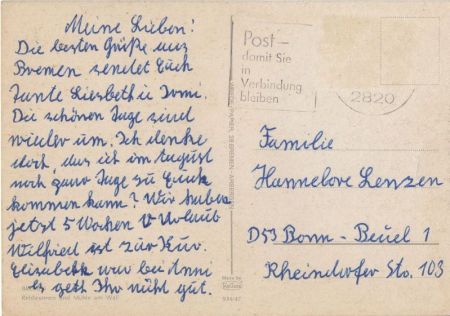 Meine Lieben!
Die besten Grüße aus
Bremen sendet Euch
Tante Liesbeth u. Irmi.
Die schönen Tage sind
wieder um. Ich denke
doch, das ich im August
noch paar Tage zu Euch
kommen kann? Wir haben
jetzt 5 Wochen Urlaub
Wilfried ist zur Kur.
Elisabeth war bei Anni
es geht Ihr nicht gut.
Mühle am Wall
Post-
damit Sie
in
Verbindung
bleiben
2820
Familie
Hannelore Lenzen
D53 Bonn - Beuel 1
Rheindorfer Str. 103